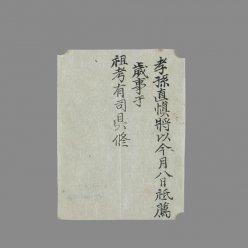 孝孫直愼將以今月八日祗薦
歲事于
祖考有司具修